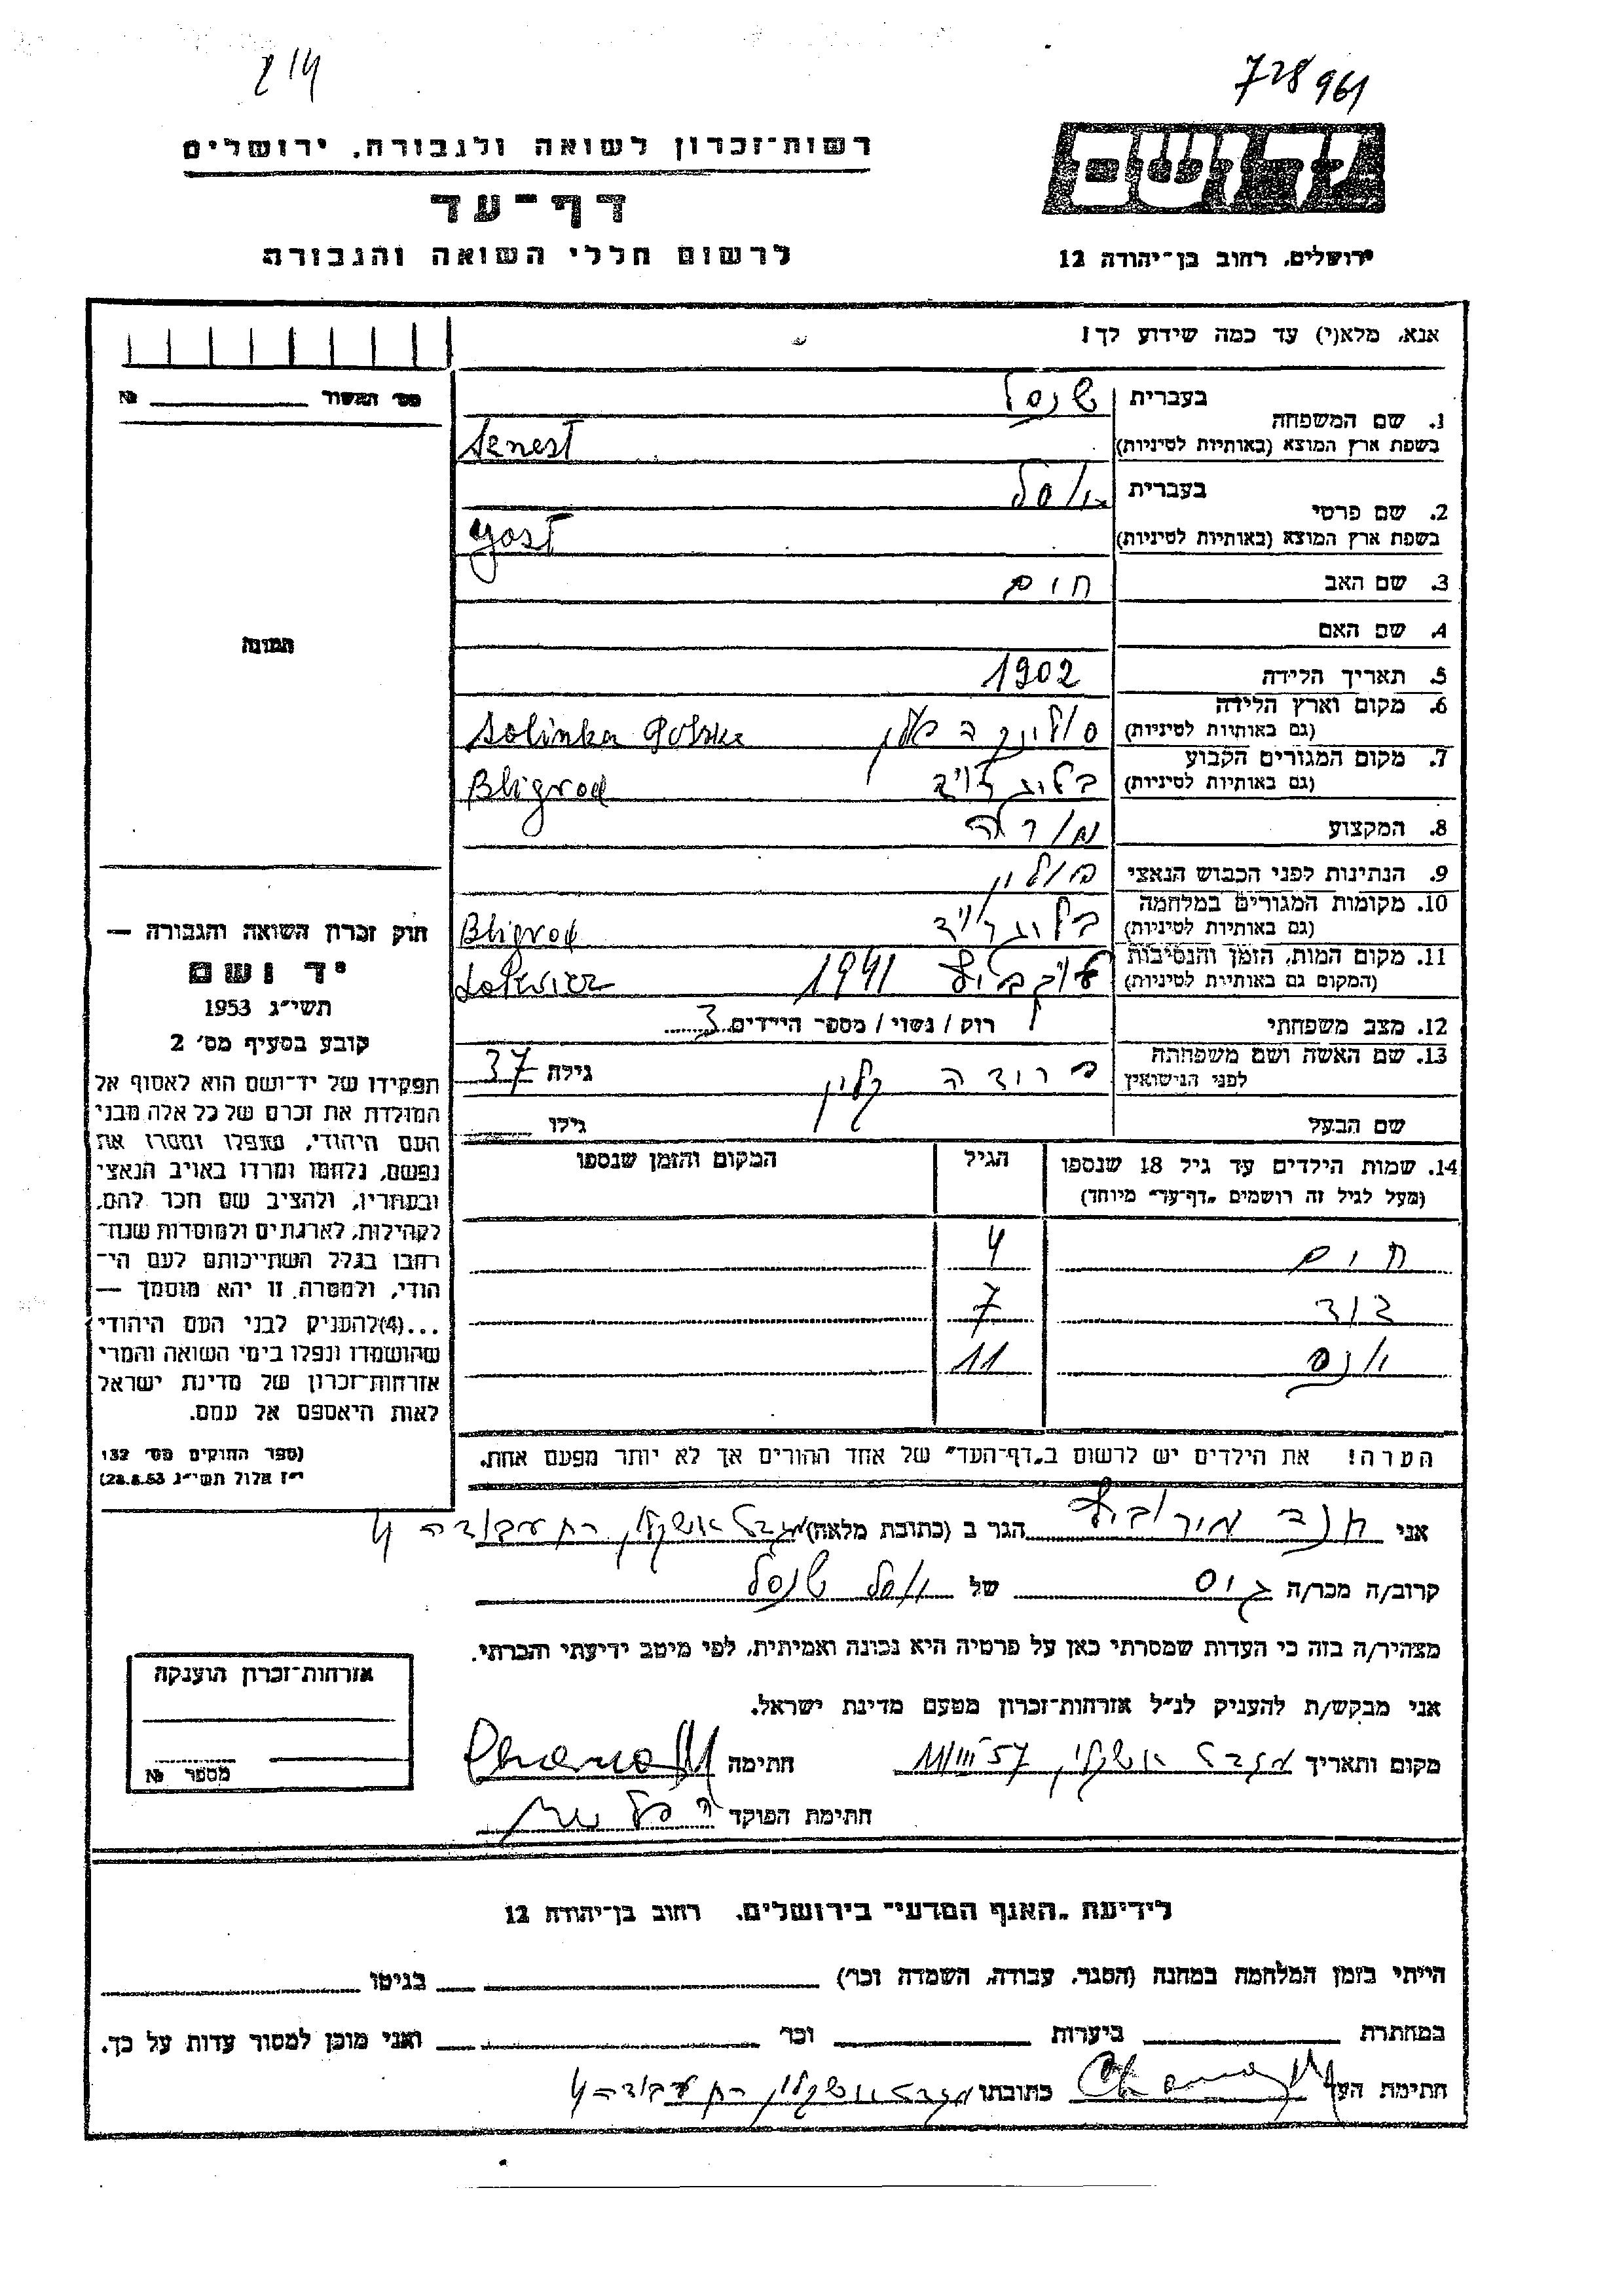 214
728961
רשות־זכרון לשואה ולגבורה, ירושלים
יד ושם
דף־עד
לרשום חללי השואה והגבורה
ירושלים, רחוב בן־יהודה 12
אנא, מלא(י) עד כמה שידוע לך!
מס׳ האשור №
1. שם המשפחה בעברית שנסל
בשפת ארץ המוצא (באותיות לטיניות)
2. שם פרטי בעברית יוסל
בשפת ארץ המוצא (באותיות לטיניות)
3. שם האב חיים
4. שם האם
5. תאריך הלידה 1902
6. מקום וארץ הלידה סולינקה פולין Solinka Polska
(גם באותיות לטיניות)
7. מקום המגורים הקבוע בליגרויד Bligrod
(גם באותיות לטיניות)
8. המקצוע מורה
9. הנתינות לפני הכבוש הנאצי פולין
10. מקומות המגורים במלחמה בליגרויד Bligrod
(גם באותיות לטיניות)
11. מקום המות, הזמן והנסיבות 1941
(המקום גם באותיות לטיניות)
12. מצב משפחתי רוק / נשוי / מספר הילדים 3
13. שם האשה ושם משפחתה פרידה קליין גילה 37
לפני הנישואין
שם הבעל גילו
14. שמות הילדים עד גיל 18 שנספו הגיל המקום והזמן שנספו
(מעל לגיל זה רושמים „דף־עד״ מיוחד)
חיים 4
דוד 7
יונס 11
הערה! את הילדים יש לרשום ב„דף־העד״ של אחד ההורים אך לא יותר מפעם אחת.
התמונה
חוק זכרון השואה והגבורה —
יד ושם
תשי״ג 1953
קובע בסעיף מס׳ 2
תפקידו של יד־ושם הוא לאסוף אל
המולדת את זכרם של כל אלה מבני
העם היהודי, שנפלו ומסרו את
נפשם, נלחמו ומרדו באויב הנאצי
ובעוזריו, ולהציב שם וזכר להם,
לקהילות, לארגונים ולמוסדות שנח־
רבו בגלל השתייכותם לעם הי־
הודי, ולמטרה זו יהא מוסמך —
...(4)להעניק לבני העם היהודי
שהושמדו ונפלו בימי השואה והמרי
אזרחות־זכרון של מדינת ישראל
לאות היאספם אל עמם.
(ספר החוקים מס׳ 132
י״ז אלול תשי״ג 28.8.53)
אני חנה הגר ב (כתובת מלאה) מגדל אשקלון רח עבודה 4
קרוב/ה מכר/ה גיס של יוסל שנסל
מצהיר/ה בזה כי העדות שמסרתי כאן על פרטיה היא נכונה ואמיתית, לפי מיטב ידיעתי והכרתי.
אני מבקש/ת להעניק לנ״ל אזרחות־זכרון מטעם מדינת ישראל.
מקום ותאריך מגדל אשקלון 11/III 57 חתימה
חתימת הפוקד
אזרחות־זכרון הוענקה
מספר №
לידיעת „האגף המדעי״ בירושלים, רחוב בן־יהודה 12
הייתי בזמן המלחמה במחנה (הסגר, עבודה, השמדה וכו׳) בגיטו
במחתרת ביערות וכו׳ ואני מוכן למסור עדות על כך.
חתימת העד כתובתו מגדל אשקלון רח עבודה 4